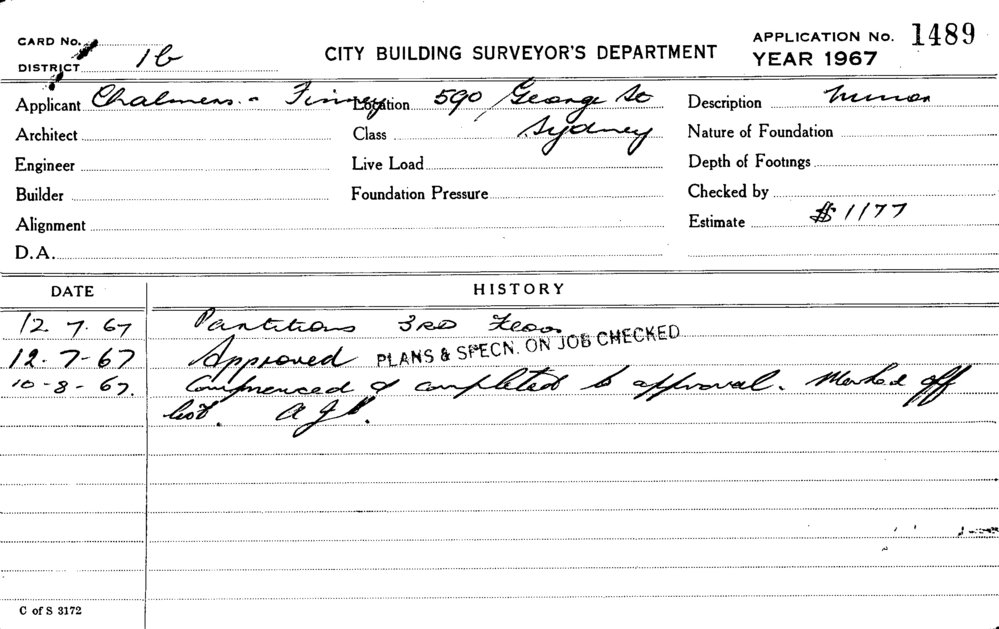 CARD No.
DISTRICT 1b
CITY BUILDING SURVEYOR'S DEPARTMENT
APPLICATION No. 1489
YEAR 1967
Applicant Chalmers - Finney Location 590 George St Description Minor
Architect Class Sydney Nature of Foundation
Engineer Live Load Depth of Footings
Builder Foundation Pressure Checked by
Alignment Estimate $1177
D.A.
DATE HISTORY
12. 7. 67 Partitions 3RD Floor
12. 7-67 Approved PLANS & SPECN. ON JOB CHECKED
10-8-67. Commenced & completed to approval. Marked off
list.
C of S 3172